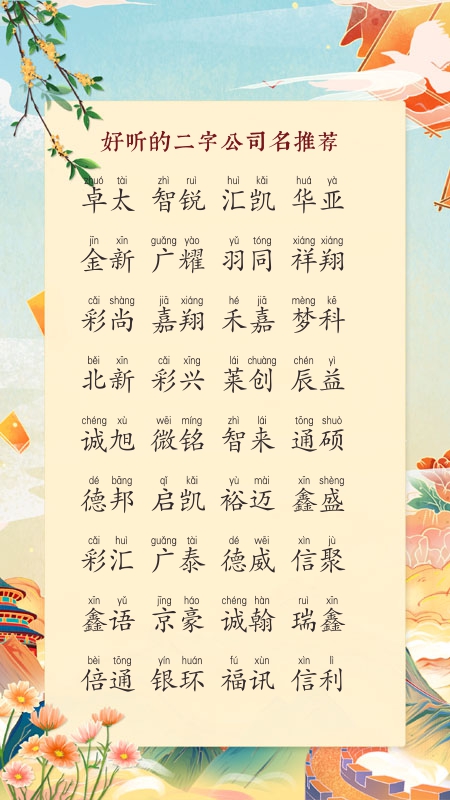 好听的二字公司名推荐
zhuó tài zhì ruì huì kǎi huá yà
卓太 智锐 汇凯 华亚
jīn xīn guǎng yào yǔ tóng xiáng xiáng
金新 广耀 羽同 祥翔
cǎi shàng jiā xiáng hé jiā mèng kē
彩尚 嘉翔 禾嘉 梦科
běi xīn cǎi xīng lái chuàng chén yì
北新 彩兴 莱创 辰益
chéng xù wēi míng zhì lái tōng shuò
诚旭 微铭 智来 通硕
dé bāng qǐ kǎi yù mài xīn shèng
德邦 启凯 裕迈 鑫盛
cǎi huì guǎng tài dé wēi xìn jù
彩汇 广泰 德威 信聚
xīn yǔ jīng háo chéng hàn ruì xīn
鑫语 京豪 诚翰 瑞鑫
bèi tōng yín huán fú xùn xìn lì
倍通 银环 福讯 信利